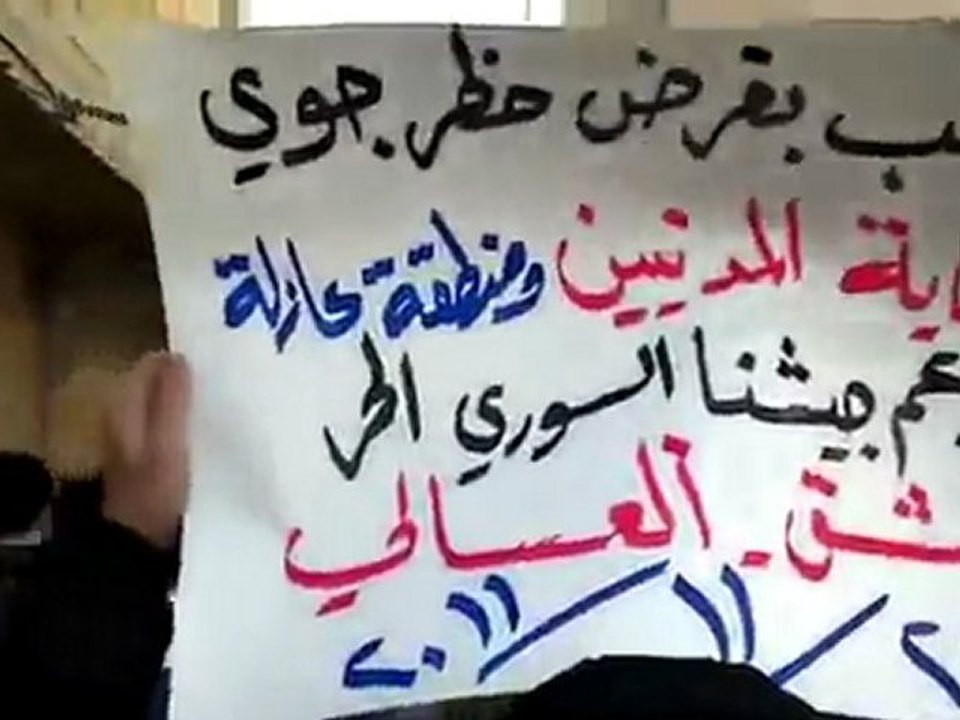 ـب بفرض حظر جوي
ـاية المدنيين ومنطقة عازلة
ـعم جيشنا السوري الحر
ـشق - العسالي
/١١/٢٠١١